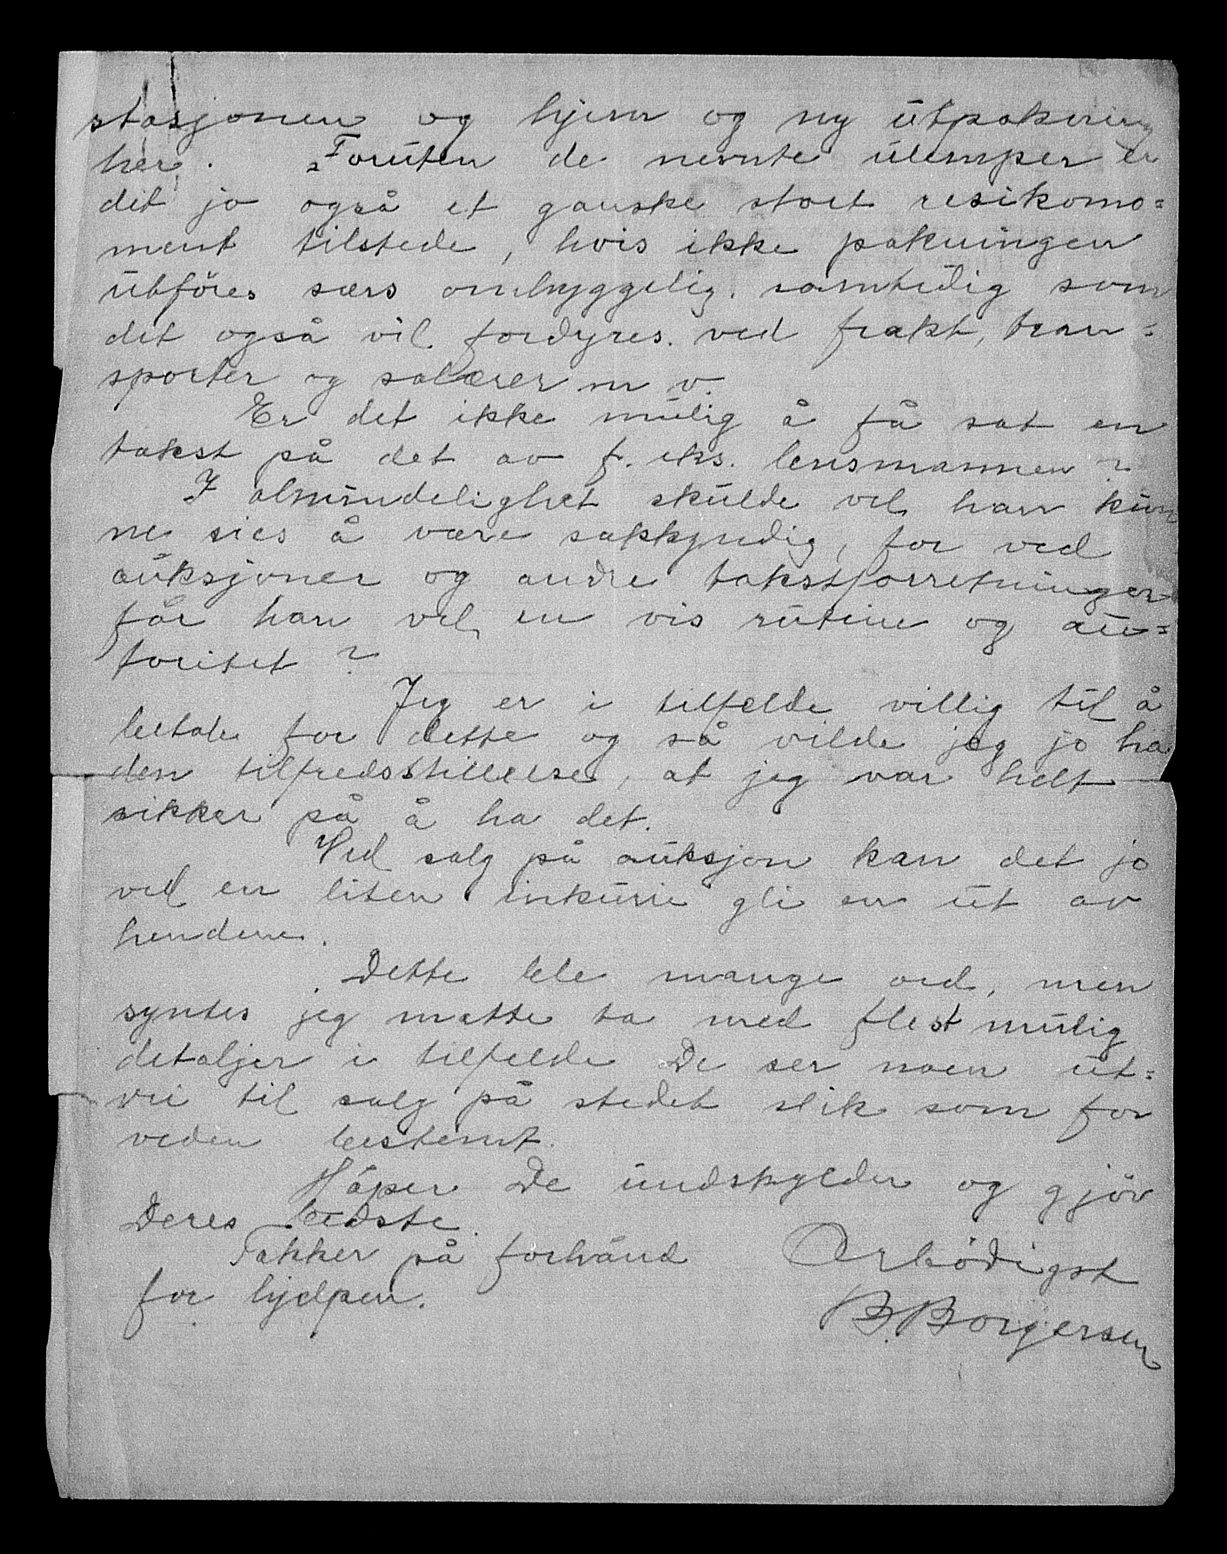 stasjonen og hjem og ny utpakning
her. Foruten de nevnte ulemper er
det jo også et ganske stort resikomo=
ment tilstede, hvis ikke pakningen
utföres særs omhyggelig. samtidig som
det også vil fordyres. ved frakt, tran=
sporter og salærer m v.
Er det ikke mulig å få sat en
takst på det av f. eks. lensmannen?
I almindelighet skulde vel han kun
ne sies å være sakkyndig, for ved
auksjoner og andre takstforretninger
får han vel en vis rutine og au=
toritet?
Jeg er i tilfelde villig til å
betale for dette og så vilde jeg jo ha
den tilfredsstillelse, at jeg var helt
sikker på å ha det.
Ved salg på auksjon kan det jo
ved en liten inkurie gli en ut av
hendene.
Dette ble mange ord, men
syntes jeg måtte ta med flest mulig
detaljer i tilfelde De ser noen ut=
vei til salg på stedet slik som for
veden bestemt.
Håper De undskylder og gjör
Deres bedste.
Takker på forhånd Ærbödigst
for hjelpen.
B. Borgersen